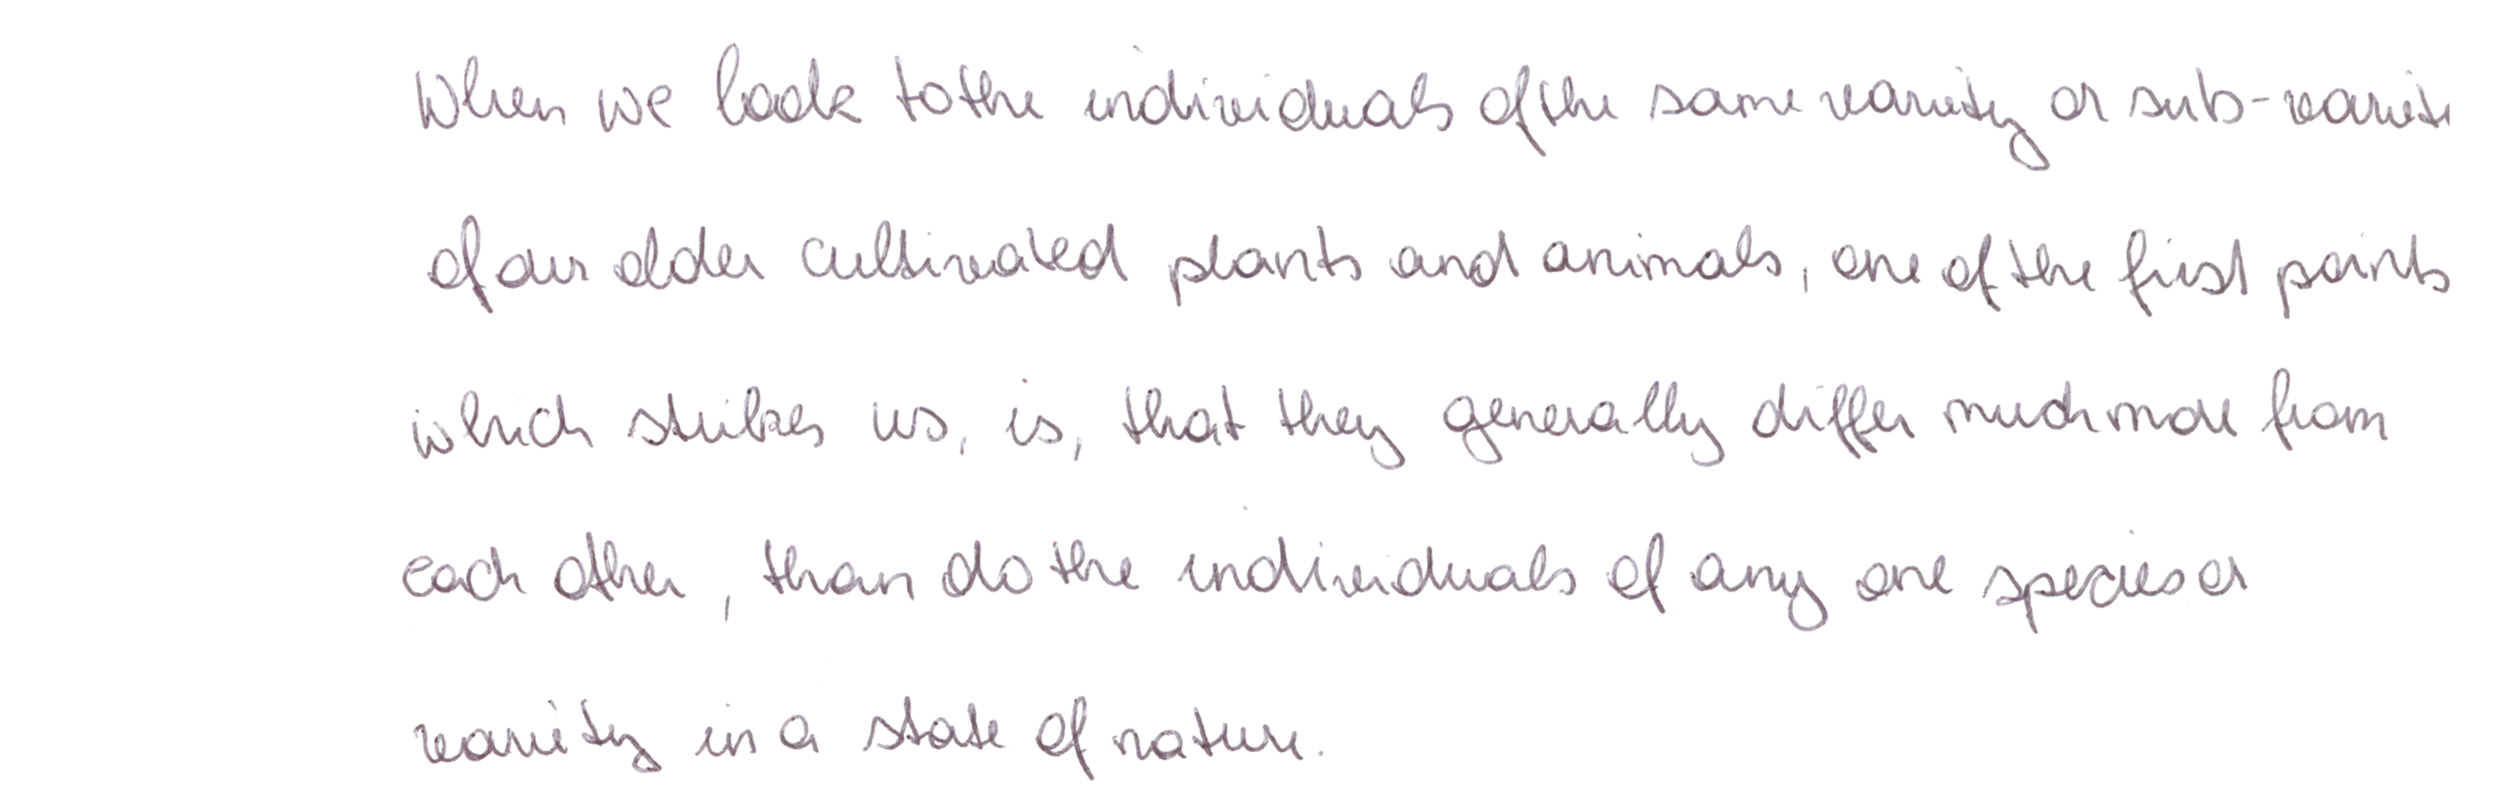 When we look to the individuals of the same variety or sub-variety
of our older cultivated plants and animals, one of the first points
which strikes us, is, that they generally differ much more from
each other, than do the individuals of any one species or
variety in a state of nature.